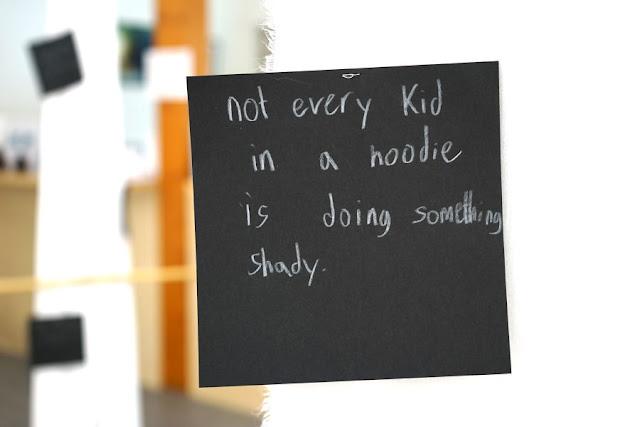 not every kid
in a hoodie
is doing something
shady.